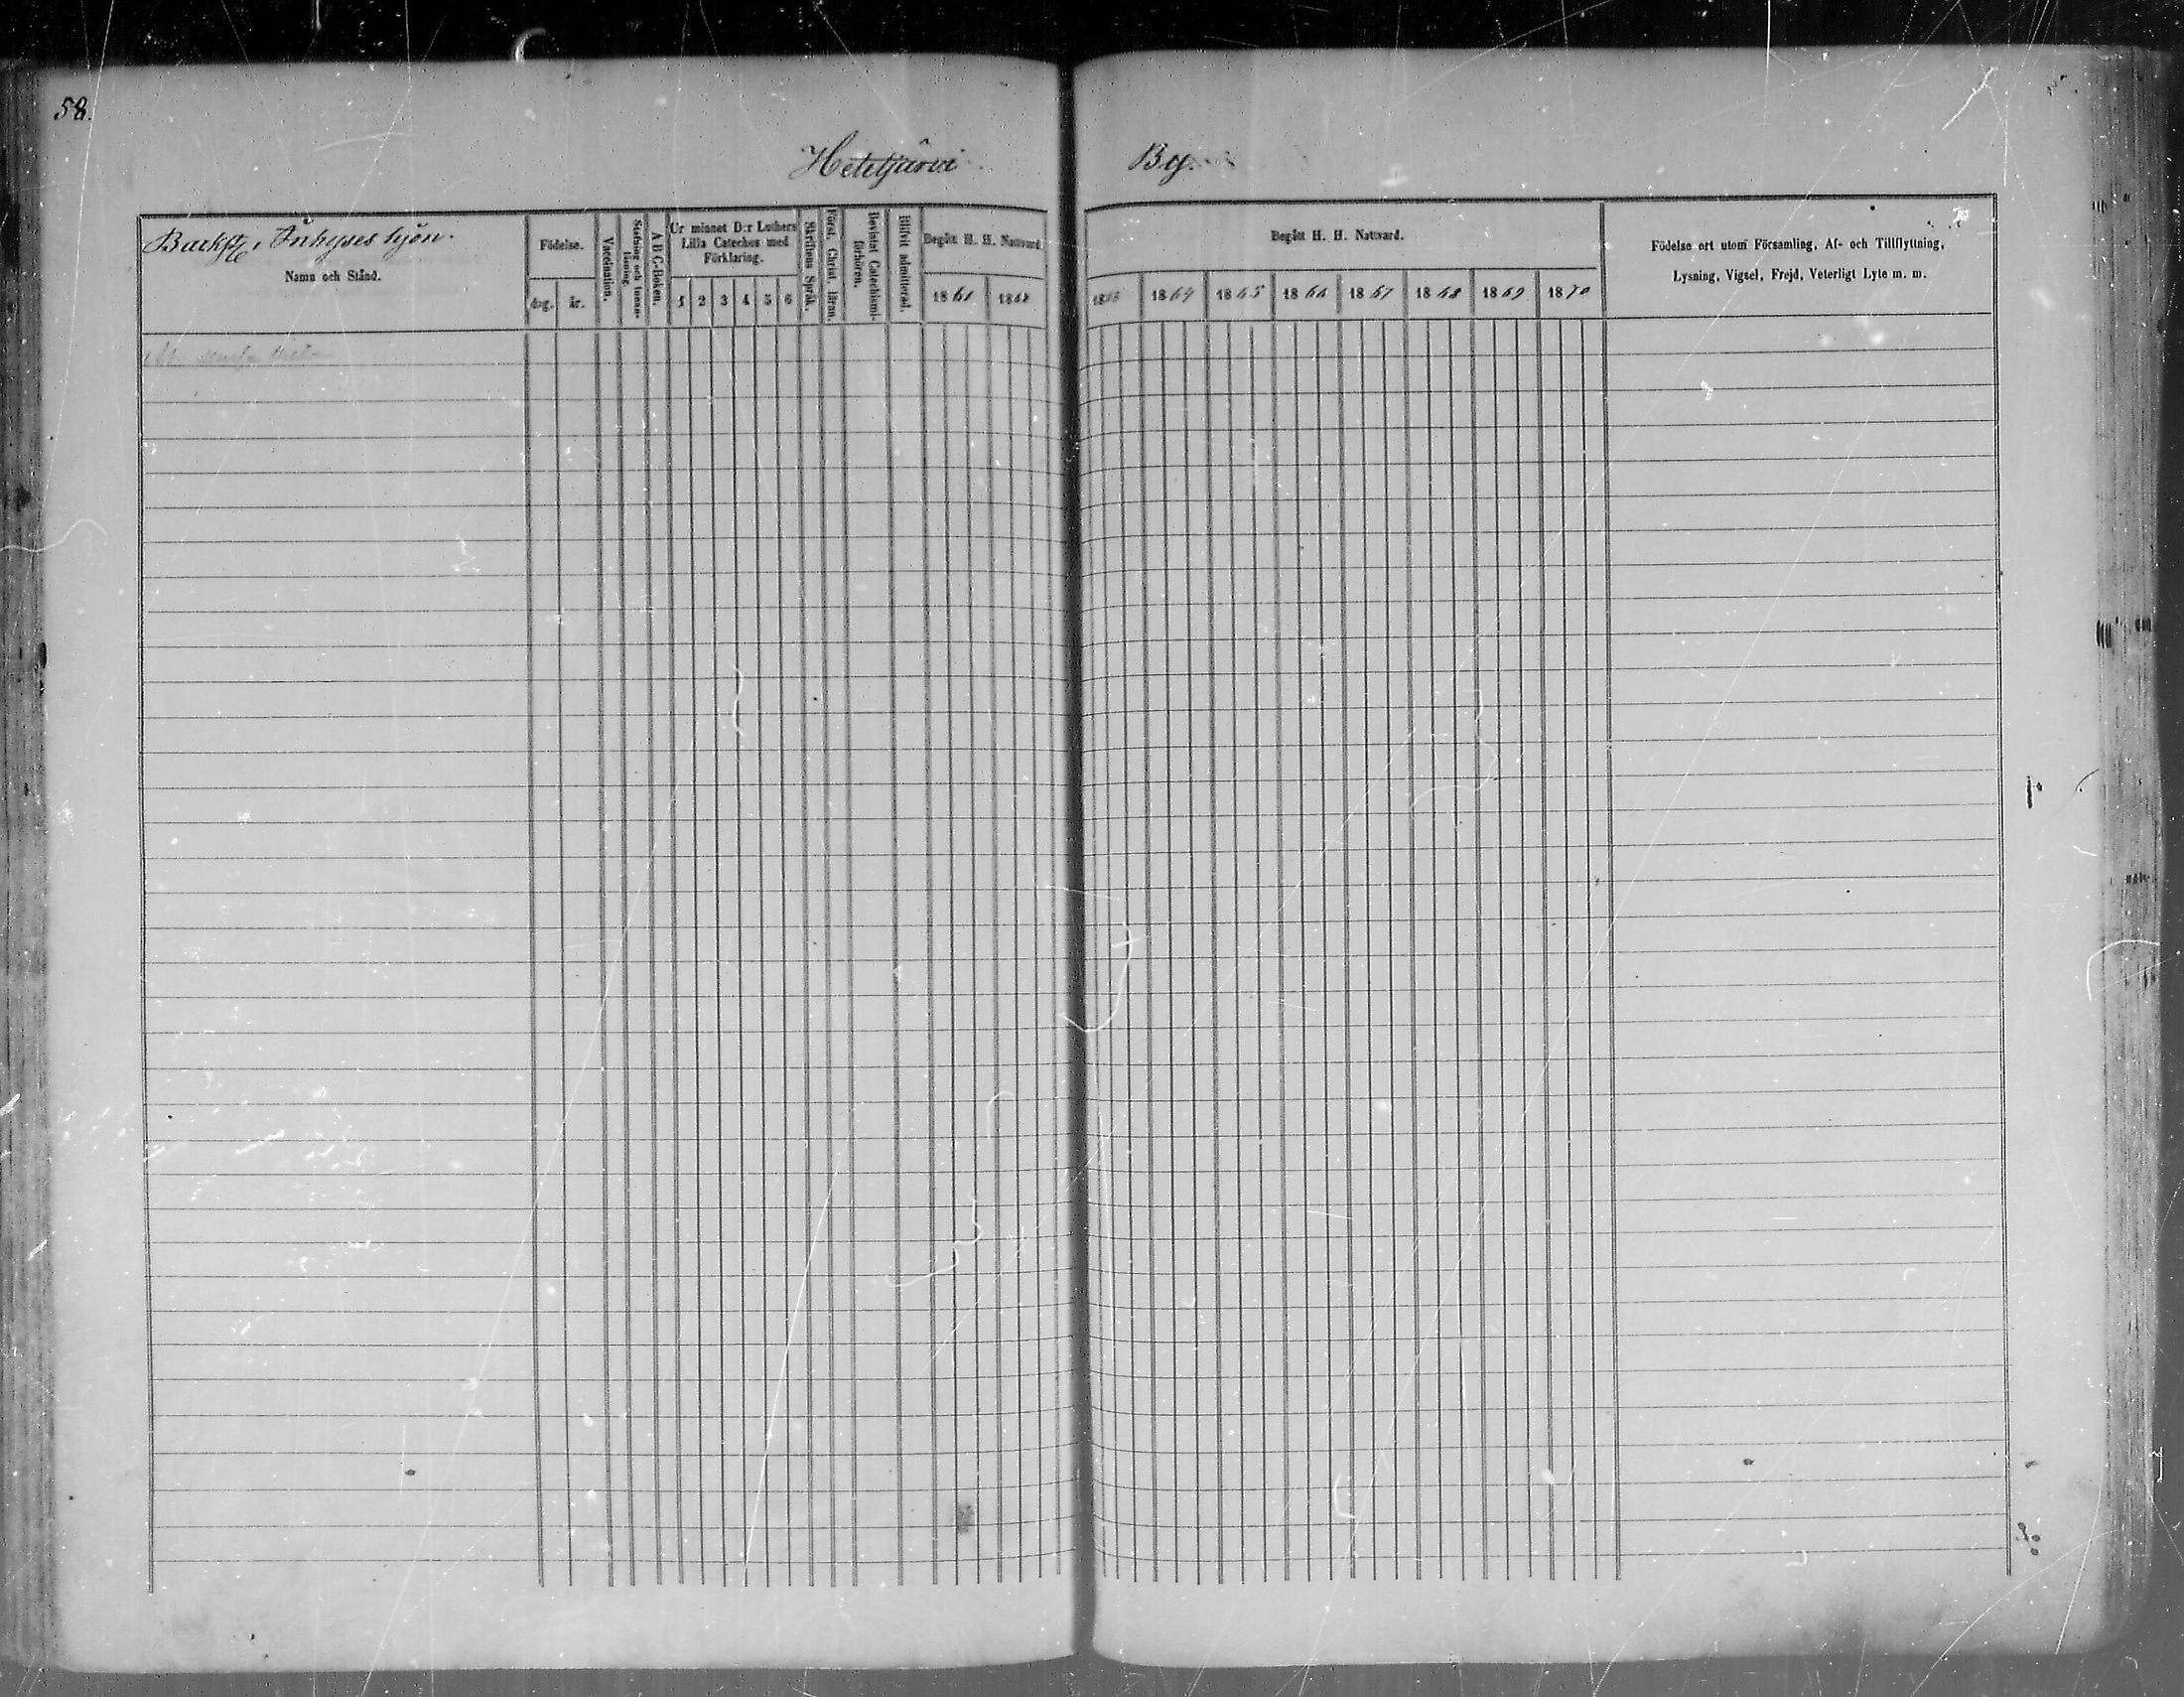 58.
Hetetjärvi By.
Backst., Inhyses hjon.
Namn och Stånd.
Födelse.
dag. år.
Vaccination.
Stafning och Innan-läsning.
A B C-Boken.
Ur minnet D:r Luthers
Lilla Cateches med
Förklaring.
1 2 3 4 5 6
Skriftens Språk.
Först. Christ. läran.
Bevistat Catechismi-förhören.
Blifvit admitterad.
Begått H. H. Nattvard
1861 1862
Begått H. H. Nattvard.
1863 1864 1865 1866 1867 1868 1869 1870
Födelse ort utom Församling, Af- och Tillflyttning,
Lysning, Vigsel, Frejd, Veterligt Lyte m. m.